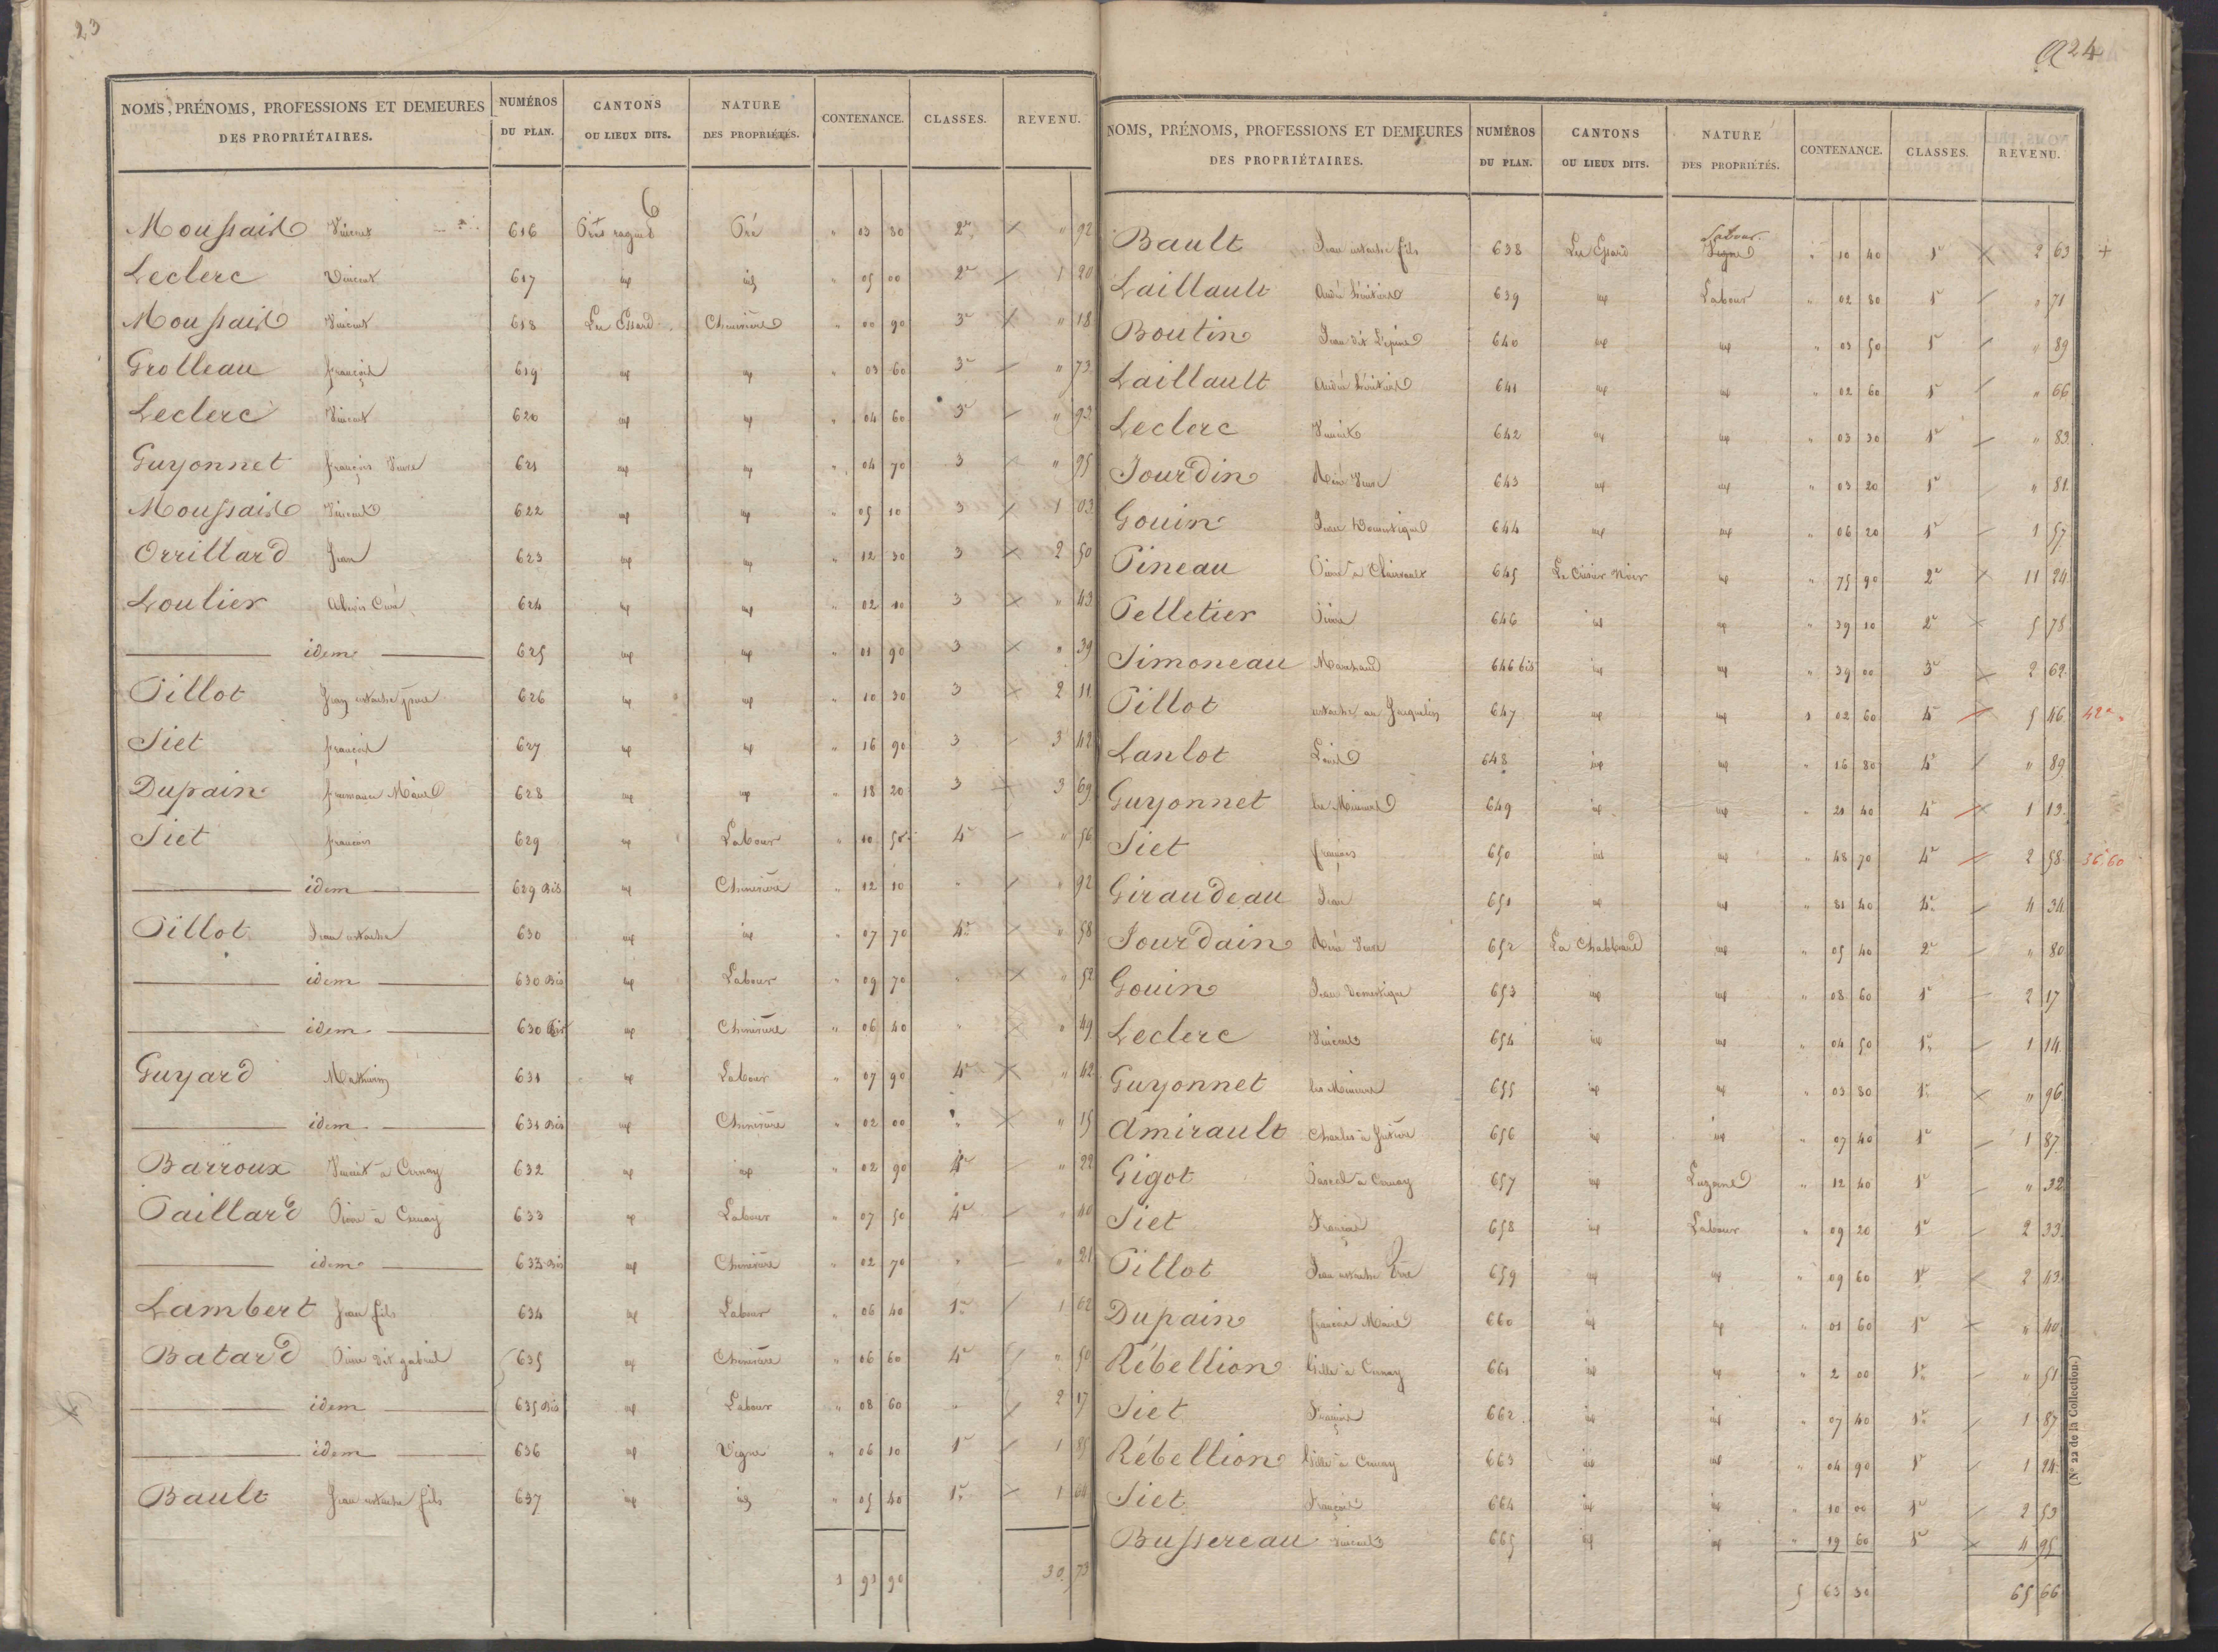 23
NOMS, PRÉNOMS, PROFESSIONS ET DEMEURES DES PROPRIÉTAIRES. NUMÉROS DU PLAN. CANTONS OU LIEUX DITS. NATURE DES PROPRIÉTÉS. CONTENANCE. CLASSES. REVENU.
Moussaid Vincent 616 Pré " 03 80 2e " 92
Leclerc Vincent 617 id " 05 00 2e 1 20
Moussaid Vincent 618 Les Essards Chenevière " 00 90 3e " 18
Grolleau françois 619 id id " 03 60 3e " 73
Leclerc Vincent 620 id id " 04 60 3e " 93
Guyonnet françois Veuve 621 id id " 04 70 3 " 95
Moussaid Vincent 622 id id " 05 10 3 1 03
Orrillard Jean 623 id id " 12 30 3 2 50
Loulier Alexis Curé 624 id id " 02 10 3 " 43
idem 625 id id " 01 90 3 " 39
Pillot Jean eustache père 626 id id " 10 30 3 2 11
Siet françois 627 id id " 16 90 3 3 42
Dupain Maire 628 id id " 18 20 3 3 69
Siet françois 629 id Labour " 10 50 4e " 56
idem 629 Bis id Chenevière " 12 10 " " 92
Pillot Jean eustache 630 id id " 07 70 4e " 58
idem 630 Bis id Labour " 09 70 " " 52
idem 630 Bis id Chenevière " 06 40 " " 49
Guyard Mathurin 631 id Labour " 07 90 4e " 42
idem 631 Bis id Chenevière " 02 00 " " 15
Barroux Vincent à Cernay 632 id id " 02 90 4e " 22
Paillard Pierre à Cernay 633 id Labour " 07 50 4e " 40
idem 633 Bis id Chenevière " 02 70 " " 21
Lambert Jean fils 634 id Labour " 06 40 1e 1 62
Batard Pierre dit gabriel 635 id Chenevière " 06 60 4e " 50
idem 635 Bis id Labour " 08 60 " 2 17
idem 636 id Vigne " 06 10 1e 1 85
Bault Jean eustache fils 637 id id " 05 40 1e 1 64
1 93 90 30 73
24
NOMS, PRÉNOMS, PROFESSIONS ET DEMEURES DES PROPRIÉTAIRES. NUMÉROS DU PLAN. CANTONS OU LIEUX DITS. NATURE DES PROPRIÉTÉS. CONTENANCE. CLASSES. REVENU.
Labour
Bault Jean eustache fils 638 Les Essards Vigne " 10 40 1e 2 63 +
Laillault André héritiers 639 id Labour " 02 80 1e " 71
Boutin Jean dit L'épine 640 id id " 03 50 1e " 89
Laillault André héritiers 641 id id " 02 60 1e " 66
Leclerc Vincent 642 id id " 03 30 1e " 83
Jourdin René Veuve 643 id id " 03 20 1e " 81
Gouin Jean Domestique 644 id id " 06 20 1e 1 57
Pineau Pierre à 645 Le Cerisier Noir id " 75 90 2e 11 24
Pelletier Pierre 646 id id " 39 10 2e 5 78
Simoneau Marchand 646 bis id id " 39 00 3e 2 62
Pillot eustache au Jacquelin 647 id id 1 02 60 4e 5 46
Lanlot Louis 648 id id " 16 80 4e " 89
Guyonnet les Mineurs 649 id id " 21 40 4e 1 13
Siet françois 650 id id " 48 70 4e 2 58 36 60
Giraudeau Jean 651 id id " 81 40 4e 4 34
Jourdain René Veuve 652 La Chabbare id " 05 40 2e " 80
Gouin Jean Domestique 653 id id " 08 60 1e 2 17
Leclerc Vincent 654 id id " 04 50 1e 1 14
Guyonnet les Mineurs 655 id id " 03 80 1e " 96
Amirault Charles à 656 id id " 07 40 1e 1 87
Gigot Pascal à Cernay 657 id Luzerne " 12 40 1e " 32
Siet François 658 id Labour " 09 20 1e 2 33
Pillot Jean eustache 659 id id " 09 60 1e 2 43
Dupain Maire 660 id id " 01 60 1e " 40
Rébellion Gille à Cernay 661 id id " 2 00 1e " 51
Siet François 662 id id " 07 40 1e 1 87
Rébellion Gille à Cernay 663 id id " 04 90 1e 1 24
Siet François 664 id id " 10 00 1e 2 53
Bussereau Vincent 665 id id " 19 60 1e 4 95
5 63 30 65 66
(N° 22 de la Collection.)